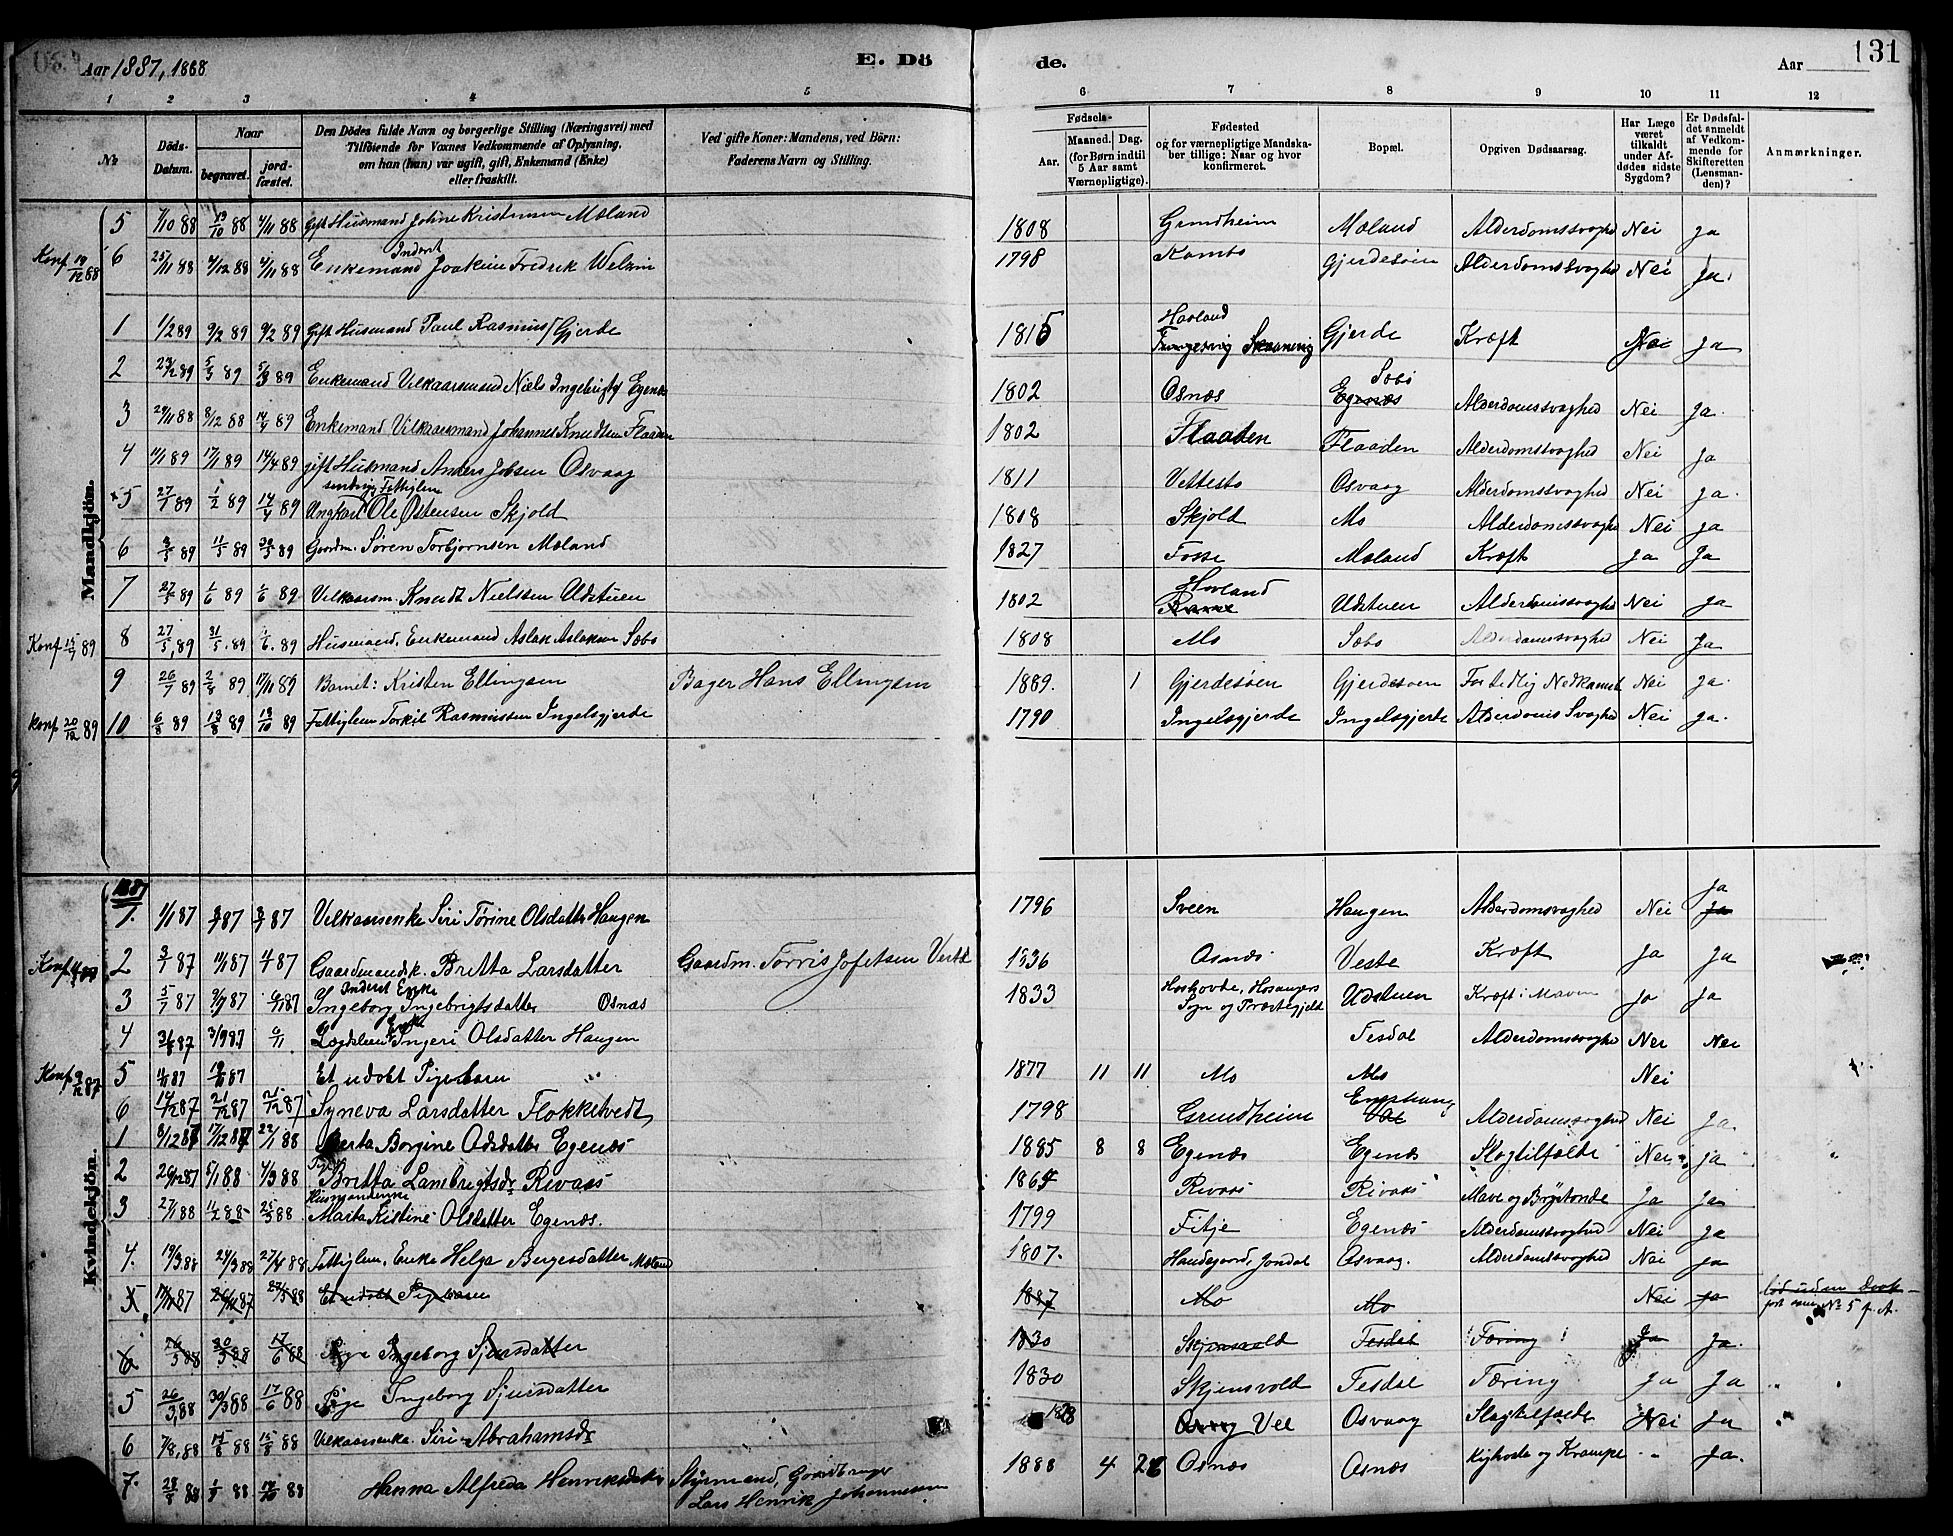 Aar 1887, 1888
E. Dö
de.
Aar
131
1 2 3 4 5 6 7 8 9 10 11 12
No
Döds-Datum.
Naar
begravet.
jordfæstet.
Den Dödes fulde Navn og borgerlige Stilling (Næringsvei) med
Tilföiende for Voxnes Vedkommende af Oplysning,
om han (hun) var ugift, gift, Enkemand (Enke)
eller fraskilt.
Ved gifte Koner: Mandens, ved Börn:
Faderens Navn og Stilling.
Fødsels-
Aar.
Maaned. Dag.
(for Børn indtil
5 Aar samt
Værnepligtige).
Fødested
og for værnepligtige Mandska-
ber tillige: Naar og hvor
konfirmeret.
Bopæl.
Opgiven Dødsaarsag.
Har Læge
været
tilkaldt
under Af-
dødes sidste
Sygdom?
Er Dødsfal-
det anmeldt
af Vedkom-
mende for
Skifteretten
(Lensman-
den)?
Anmærkninger.
Mandkjön.
5 7/10 88 19/10 88 4/11 88 gift Husmand Johne Kristensen Moland 1808 Grindheim Moland Alderdomssvaghed Nei Ja
Konf 19/12 88 6 25/11 88 4/12 88 4/11 88 Enkemand Inderst Joakim Fredrik Welzin 1798 Kambo Gjerdesøen Alderdomssvaghed Nei Ja.
1 1/2 89 9/2 89 9/2 89 Gift Husmand Paul Rasmus/ Gjerde 1815 Havland Gjerde Kræft Nei Ja
2 5/3 89 5/3 89 Enkemand Vilkaarsmand Niels Ingebrigts/ Egenæs 1802 Osnæs Sæbø Egenæs Alderdomssvaghed Nei Ja.
3 29/11 88 8/12 88 14/4 89 Enkemand Vilkaarsmand Johannes Knudtsen Flaaden 1802 Flaaden Flaaden Alderdomssvaghed Nei Ja
4 11/1 89 17/1 89 14/4 89 gift Husmand Anders Jobsen Osvaag 1811 Vettestø Osvaag Alderdomssvaghed Nei Ja.
5 27/1 89 1/2 89 14/4 89 Ungkarl sindssyg Fattiglem Ole Østensen Skjold 1808 Skjold Mo Alderdomssvaghed Nei Ja
6 3/5 89 11/5 89 30/5 89 Gaardm. Søren Torbjørnsen Moland 1827 Fosse Moland Kræft Ja Ja
7 27/5 89 1/6 89 1/6 89 Vilkaarsm. Knudt Nielssen Udstuen 1802 Hovland Udstuen Alderdomssvaghed Nei Ja
Konf 15/7 89 8 27/5. 89 31/5. 89 1/6. 89 Husmand. Enkemand Aslak Aslaksen Sæbø 1808 Mo Sæbø Alderdomssvaghed Nei Ja
9 26/7 89 2/8 89 17/11 89 Barnet: Kristen Ellingsen Bager Hans Ellingsen 1889. 1 Gjerdesøen Gjerdesøen For tidlig Nedkomst Nei Ja.
Konf 20/12 89 10 6/8 89 13/8 89 13/10 89 Fattiglem Torkil Rasmussen Ingelsgjerde 1790 Ingelsgjerde Ingelsgjerde Alderdoms Svaghed Nei Ja.
Kvindekjön.
1887
1. 1/1 87 87 87 Vilkaarsenke Siri Tørine Olsdatter Haugen 1796 Sveen Haugen Alderdomsvaghed Nei Ja Ja
Konf 87 2 3/7 87 11/1 87 4/ 87 Gaardmandsk. Britta Larsdatter Gaardm. Torris Josefsen Veste 1836 Osnæs Veste Kræft Ja Ja
3 5/7 87 9/7 87 6/11 87 Inderst Enke Ingeborg Ingebrigtsdatter Osnæs 1833 Hosangers Sogn og Præstegjeld Udstuen Kræft i Maven Ja Ja
4 87 87 6/11 Lægdslem Enke Ingeri Olsdatter Haugen Tesdal Alderdomssvaghed Nei Nei
Konf 9/12 87 5 87 87 Et udøbt Pigebarn 1877 11 11 Mo Mo Nei
6 14/12 87 21/12 87 21/12 87 Syneva Larsdatter Flokketvedt 1798 Grindheim Alderdomssvaghed Nei Ja.
1 8/12 87 17/12 87 22/1 88 Berta Borgine Odsdatter Egenæs 1885 8 8 Egenæs Egenæs Slagtilfælde Nei Ja
2 26/12 87 5/1 88 4/3 88 Britta Lambrigtsdr Rivaas 1864 Rivaas Rivaas Mave og Brystonde Ja Ja
3 27/1 88 1/2 88 25/3 88 Husmandsenke Marta Kistine Olsdatter Egenæs. 1799 Fitje Egenæs Alderdomssvaghed Nei Ja
4. 19/3 88 24/3 88 27/4 88 Fattiglem. Enke Helga Bergesdatter Moland 1807. Handegaard, Jondal Osvaag. Alderdomssvaghed Nei Ja
5. 87 87 88 Et udøbt Pigebarn 1887 Mo Mo Nei Ja
ført som No 5 f. A.
6 26/3 88 30/3 88 17/6 88 Pige Ingeborg Sjursdatter 1830 Skjensvold Tesdal Tæring Ja Ja.
5 26/3. 88 30/3 88 17/6 88 Pige Ingeborg Sjursdatter 1830 Skjensvold Tesdal Tæring Ja Ja
6 7/8. 88 15/8 88 15/8 88 Vilkaarsenke. Siri Abrahamsdr Vee Osvaag Slagtilfælde Nei Ja
7. 88 88 88 Hanna Alfreda Henriksdatter Styrmand, Gaardbruger 1888 4 Osnæs Osnæs Kighoste og Krampe " Ja.
Lars Henrik Johannesen